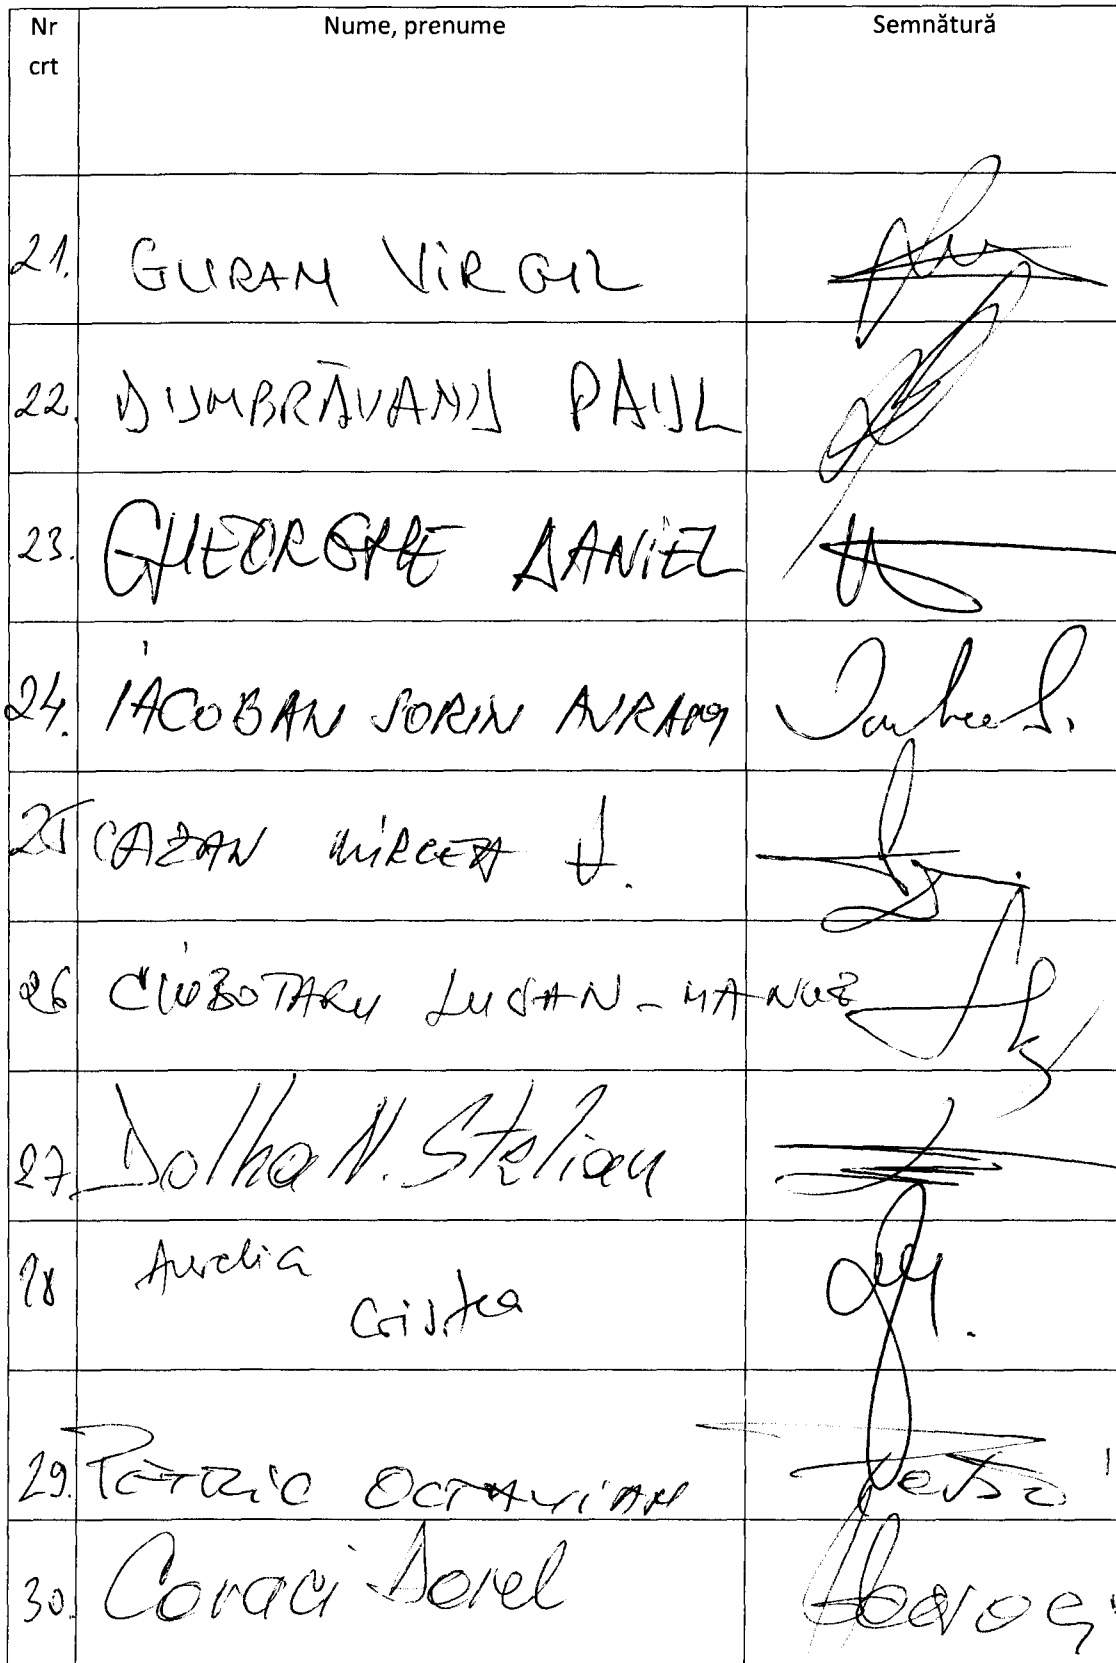 Nr crt Nume, prenume Semnătură
21. GURAN VIRGIL
22. DUMBRĂVANU PAUL
23. GHEORGHE DANIEL
24. IACOBAN SORIN AVRAM
25 CAZAN MIRCEA V.
26 CIUBOTARU LUCIAN-MANUEL
27. Dolha N. Stelian
28 Aurelia
Cristea
29. PETRIC OCTAVIAN
30. Covaci Dorel